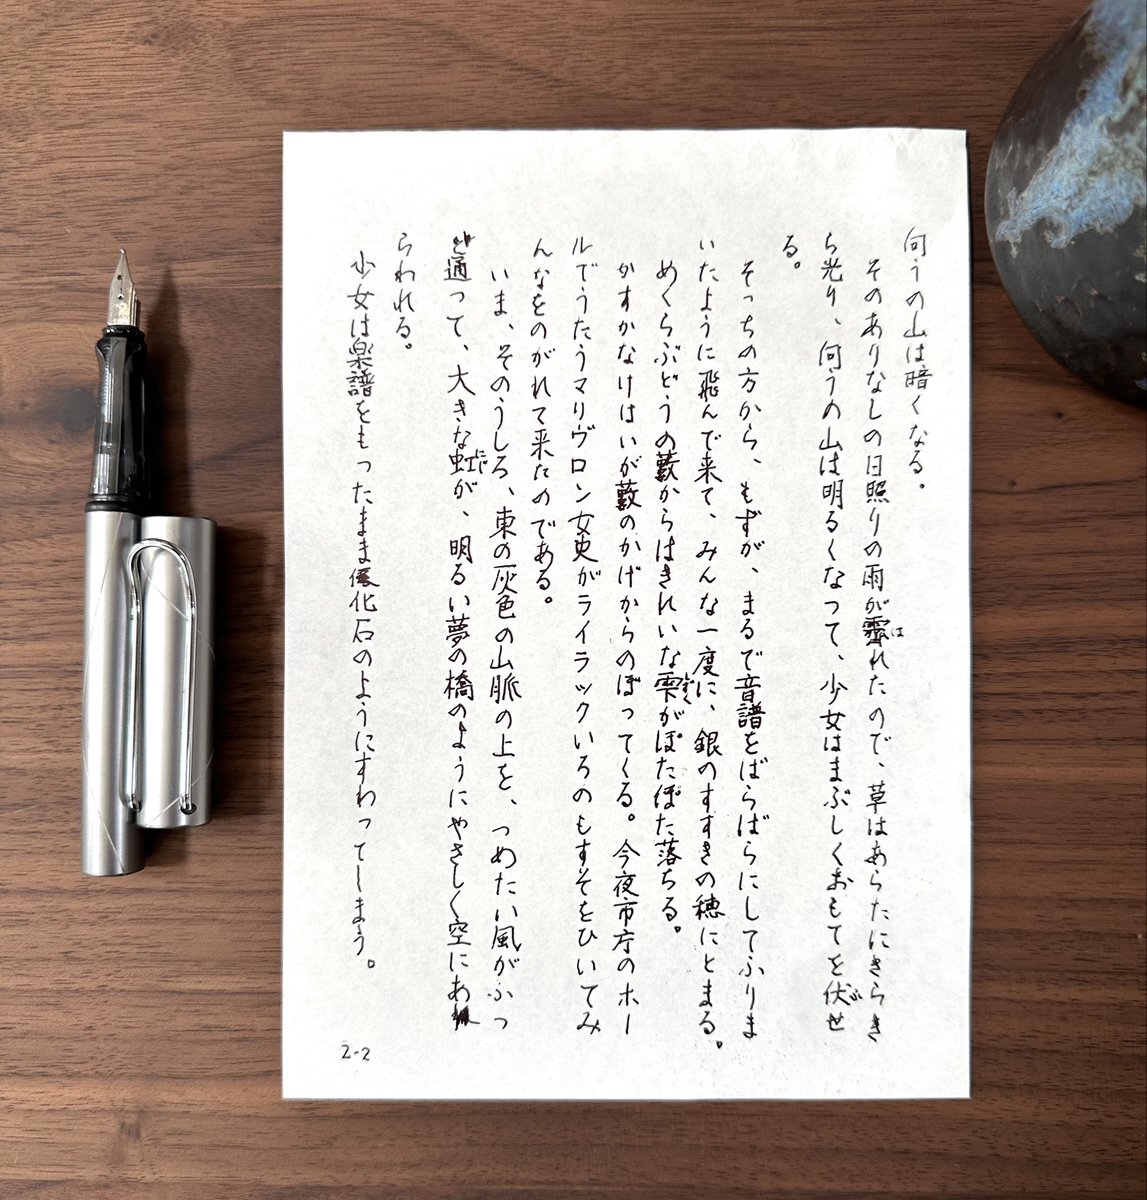 向うの山は暗くなる。
そのありなしの日照りの雨が霽れたので、草はあらたにきらき
ら光り、向うの山は明るくなって、少女はまぶしくおもてを伏せ
る。
そっちの方から、もずが、まるで音譜をばらばらにしてふりま
いたように飛んで来て、みんな一度に、銀のすすきの穂にとまる。
めくらぶどうの藪からはきれいな雫がぽたぽた落ちる。
かすかなけはいが藪のかげからのぼってくる。今夜市庁のホー
ルでうたうマリヴロン女史がライラックいろのもすそをひいてみ
んなをのがれて来たのである。
いま、そのうしろ、東の灰色の山脈の上を、つめたい風がふっ
と通って、大きな虹が、明るい夢の橋のようにやさしく空にあ
らわれる。
少女は楽譜をもったまま化石のようにすわってしまう。
2-2